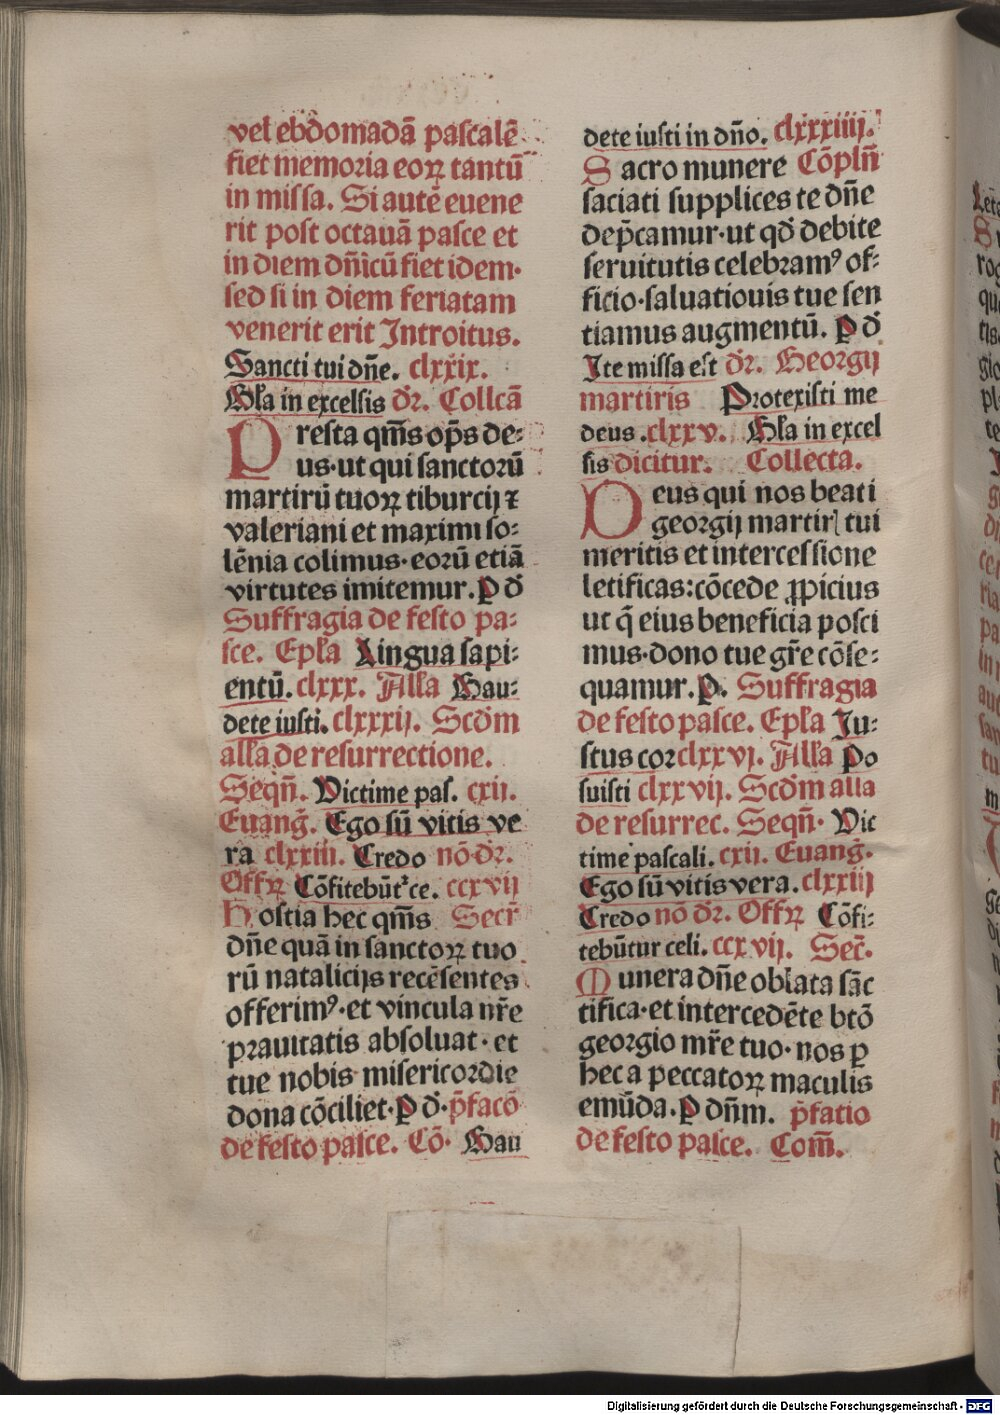 vel ebdomadā pascalē
fiet memoria eoꝝ tantū
in missa. Si autē euene
rit post octauā pasce et
in diem dñicū fiet idem·
sed si in diem feriatam
venerit erit Introitus.
Sancti tui dñe. clxxix.
Gl̓a in excelsis dr̄. Collcā
Presta qm̄s op̄s de⸗
us·ut qui sanctorū
martirū tuoꝝ tiburcij ⁊
valeriani et maximi so⸗
lēnia colimus·eorū etiā
virtutes imitemur. P d̄
Suffragia de festo pa⸗
sce. Epl̓a Lingua sapi⸗
entū. clxxx. All̓a Gau⸗
dete iusti. clxxxij. Scd̄m
all̓a de resurrectione.
Seqñ. Victime pas. cxij.
Euang̃. Ego sū vitis ve
ra clxxiii. Credo nō·dr̄.
Offꝝ Cōfitebūt᷑ ce. ccxvij
Hostia hec qm̄s Secr̄
dñe quā in sanctoꝝ tuo
rū natalicijs recēsentes
offerimꝰ·et vincula nr̄e
prauitatis absoluat·et
tue nobis misericordie
dona cōciliet·P d̄·p̄facō
de festo pasce. Cō· Gau
dete iusti in dño. clxxxiiij.
Sacro munere Cōplñ
saciati supplices te dñe
dep̄camur·ut qd̄ debite
seruitutis celebramꝰ of⸗
ficio·saluatiouis tue sen
tiamus augmentū. P d̄
Ite missa est dr̄. Georgij
martiris Protexisti me
deus .clxxv. Gl̓a in excel
sis dicitur. Collecta.
Deus qui nos beati
georgij martirꝭ tui
meritis et intercessione
letificas:cōcede ꝓpicius
ut q̄ eius beneficia posci
mus·dono tue gr̄e cōse⸗
quamur. P. Suffragia
de festo pasce. Epl̓a Iu⸗
stus cor clxxvj. All̓a Po
suisti clxxvij. Scd̄m alla
de resurrec. Seqñ· Vic
time pascali. cxij. Euang̃.
Ego sū vitis vera. clxxiij
Credo nō dr̄. Offꝝ Cōfi⸗
tebūtur celi. ccxvij. Sec̄.
Munera dñe oblata sāc
tifica·et intercedēte btō
georgio mr̄e tuo·nos ꝑ
hec a peccatoꝝ maculis
emūda. P dñm. p̄fatio
de festo pasce. Com̄.
Digitalisierung gefördert durch die Deutsche Forschungsgemeinschaft - DFG